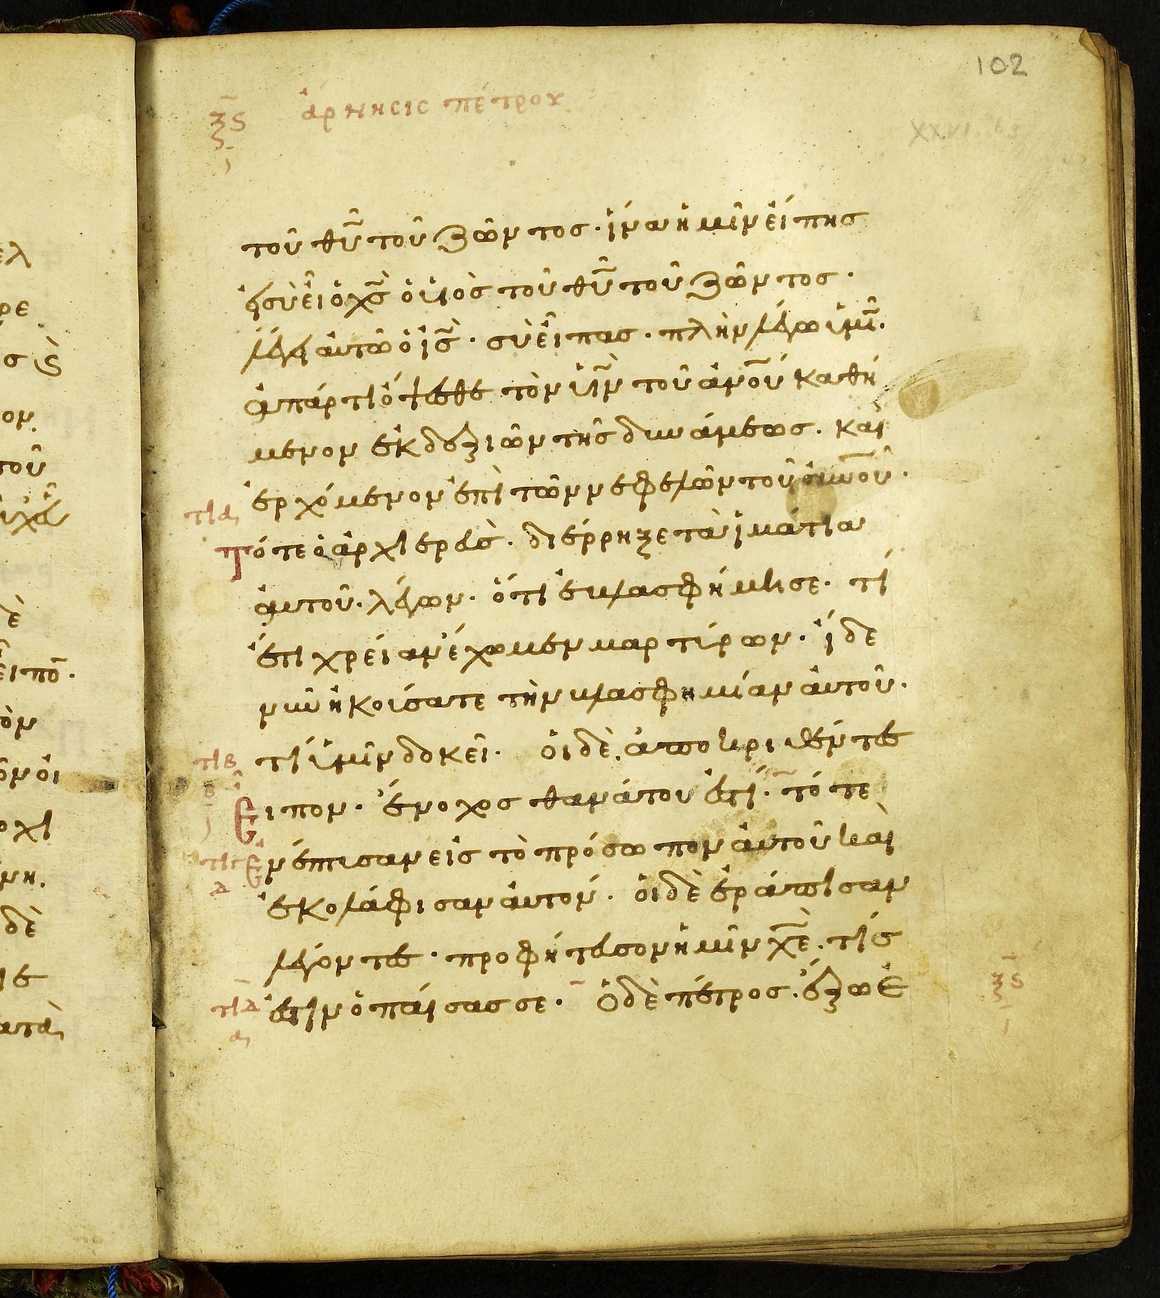 102
ξϛ ἄρνησις πέτρου
XXVI. 63
τοῦ θῦ τοῦ ζῶντος· ἵνα ἡμῖν εἴπης
εἰ σὺ εἶ ὁ χς ὁ υἱὸς τοῦ θῦ τοῦ ζῶντος·
λέγει αὐτῶ ὁ ις· σὺ εἶπας· πλὴν λέγω ὑμῖν·
ἀπάρτι ὄψεσθε τὸν υἱὸν τοῦ ανου καθή
μενον ἐκ δεξιῶν τῆς δυνάμεως· καὶ
ἐρχόμενον ἐπὶ τῶν νεφελῶν τοῦ οὐνοῦ·
τια
Τότε ὁ ἀρχιερεὺς· διέρρηξε τὰ ἱμάτια
αὐτοῦ· λέγων· ὅτι ἐβλασφήμησε· τί
ἔτι χρείαν ἔχωμεν μαρτύρων· ἴδε
νῦν ἠκούσατε τὴν βλασφημίαν αὐτοῦ·
τιβ τί ὑμῖν δοκεῖ· οἱ δὲ ἀποκριθέντες
Εἶπον· ἔνοχος θανάτου ἐστί· τότε
τιγ Ἐνέπτυσαν εἰς τὸ πρόσωπον αὐτοῦ καὶ
ἐκολάφισαν αὐτόν· οἱ δὲ ἐράπισαν
λέγοντες· προφήτευσον ἡμῖν χε· τίς
τιδ ἐστιν ὁ παίσας σε· Ὁ δὲ πέτρος· ἔξω ἐ
α
ξϛ